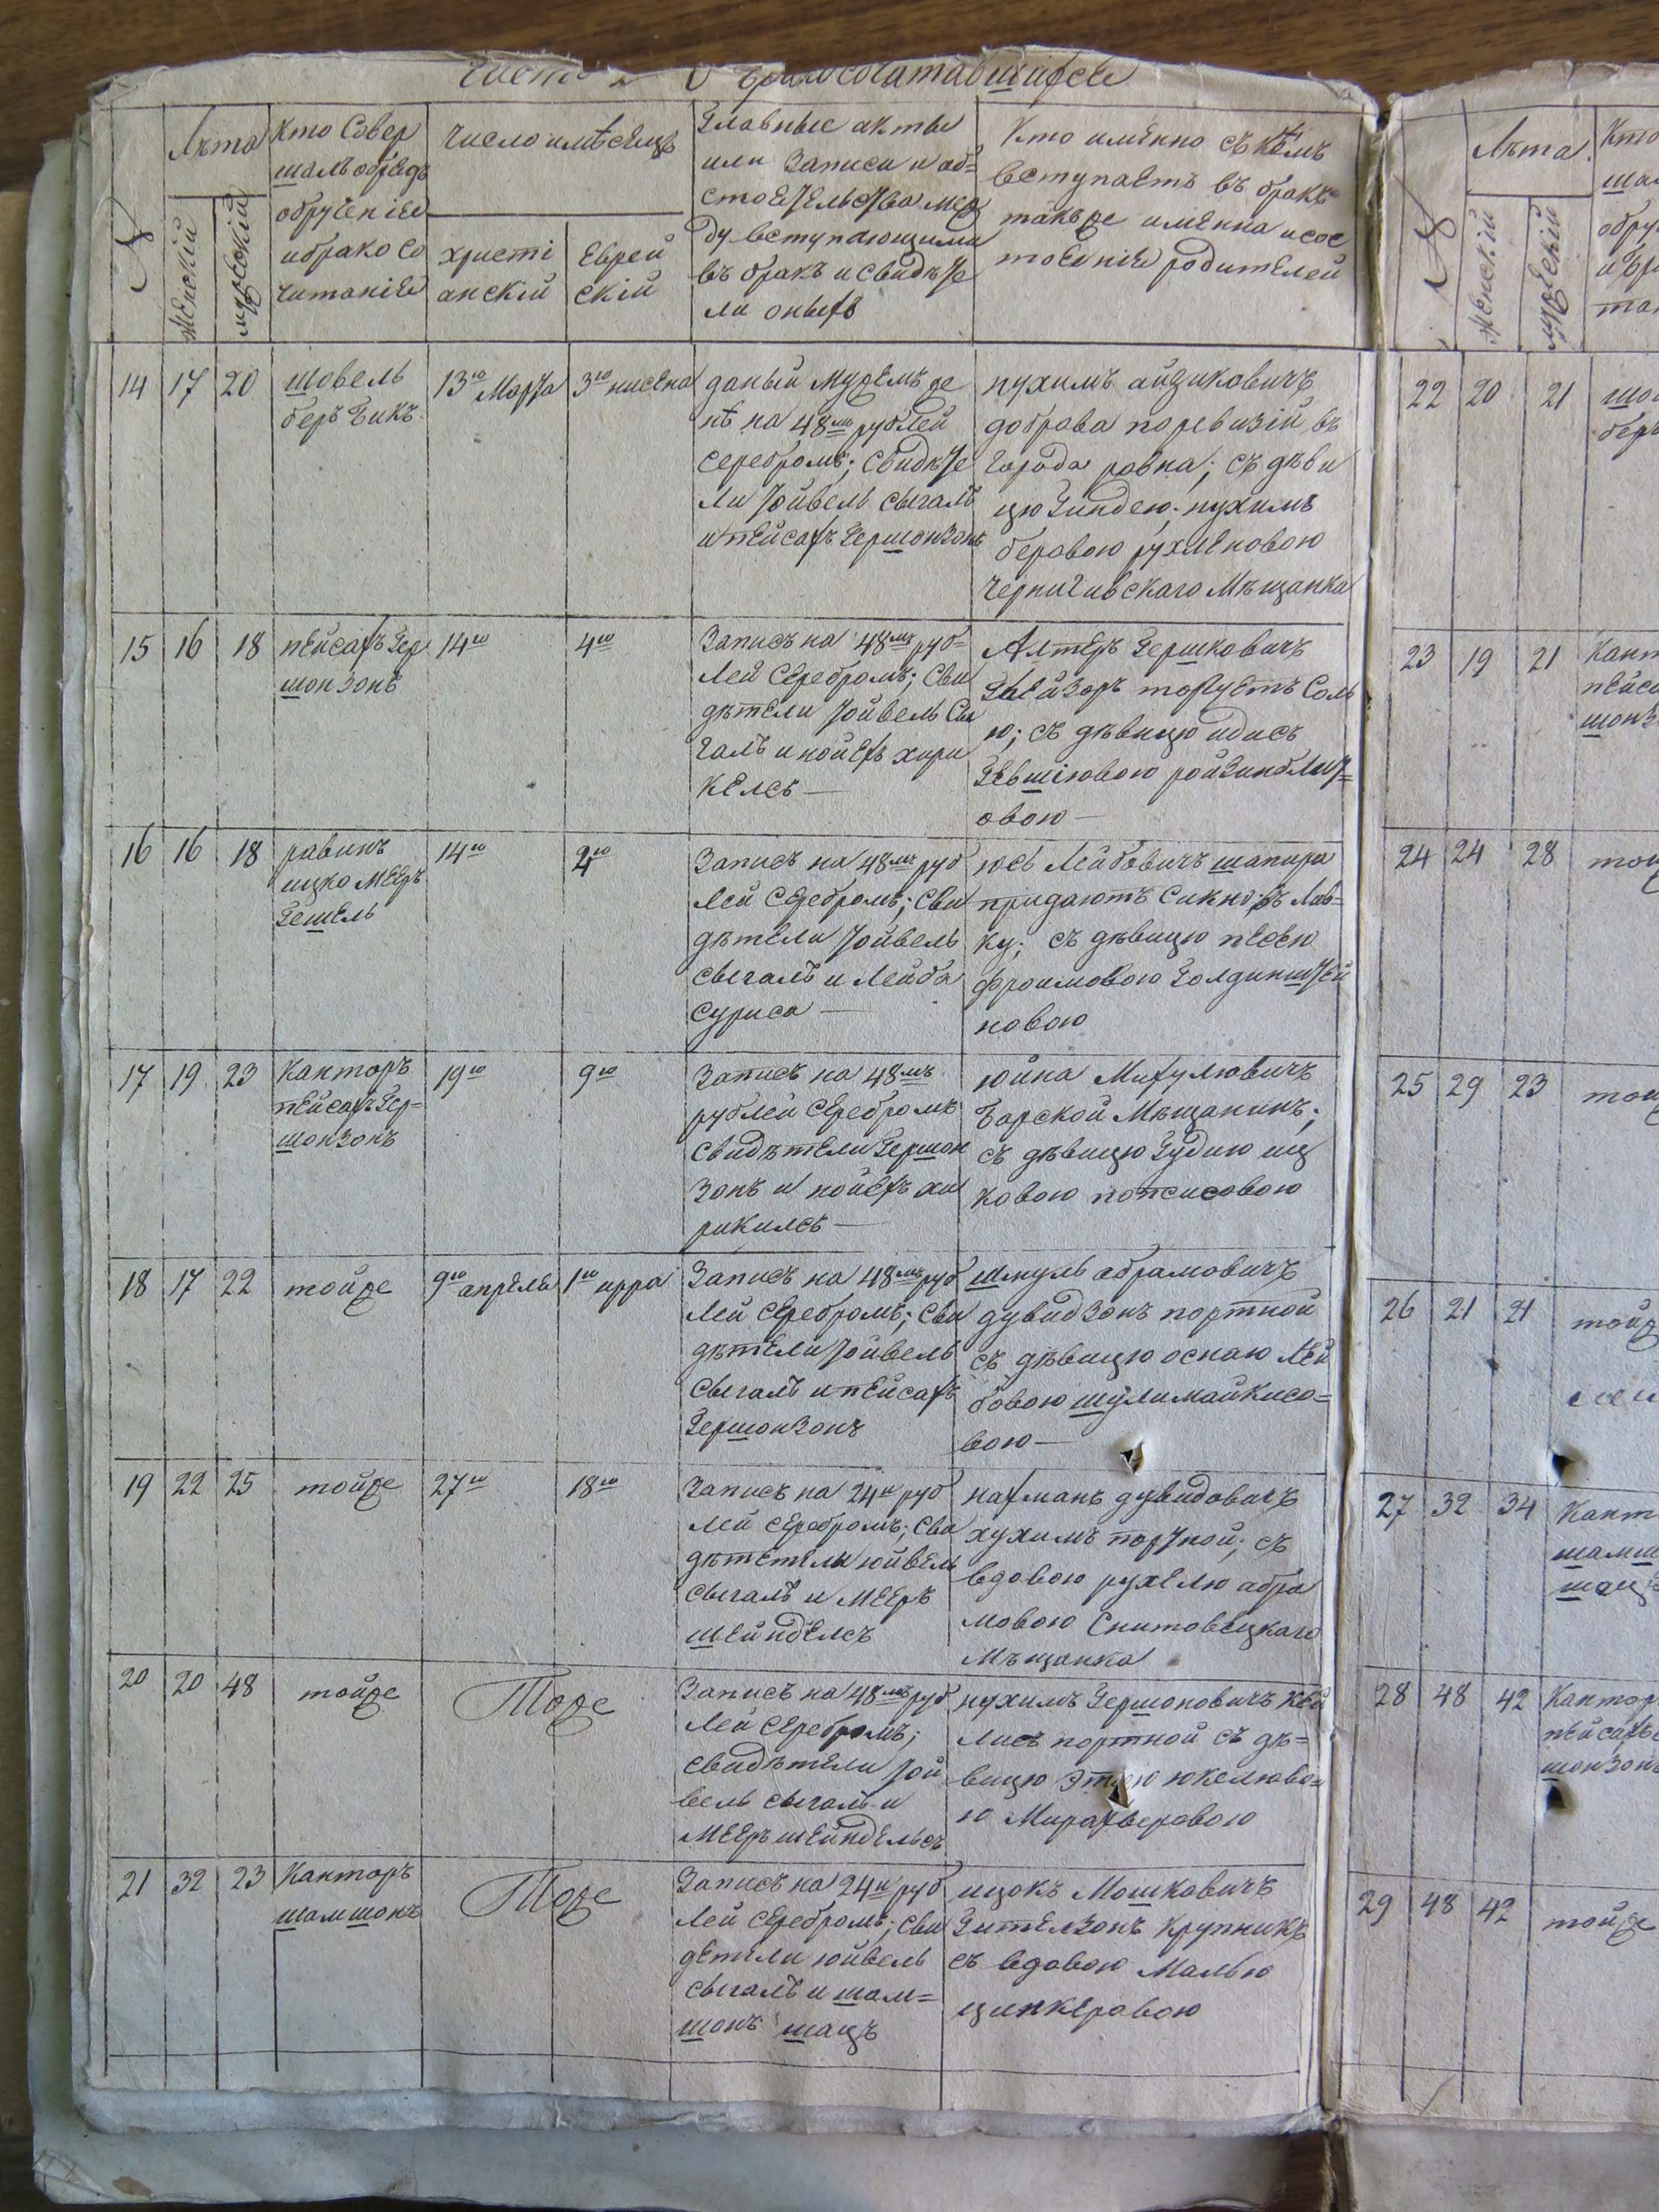 Часть 2я О бракосочитавшихся
№
Лѣта
Женскій
мужескій
Кто Совер
шалъ обредъ
обрученіе
и брако со
читаніе
число имѣсецъ
христі
анскій
Еврей
скій
Главные акты
или Записи и об=
стоетельства меж
ду вступающими
въ бракъ и свидѣте
ли оныхъ
Кто именно съ кѣмъ
вступаетъ въ бракъ
такъже именна и сос
тоеніе родителей
14 17 20
шовель
беръ бикъ
13го Марта
3го нисена
даный мужемъ же
нѣ на 48мъ рублей
серебромъ; свидѣте
ли Іойвель сыгалъ
и пейсахъ Гершонзонъ
нухимъ айзиковичъ
доброва поревизій въ
города ровна; съ дѣви
цю Гиндею, нухимъ
беровою рухленовою
чернигивскаго Мѣщанка
15 16 18
пейсахъ Гер
шонзонъ
14го
4го
Записъ на 48мъ руб=
лей серебромъ; сви
дѣтели Іойвель сы
галъ и нойехъ хари
келсъ —
Алтеръ Гершковичъ
торгуетъ Соль
ю; съ дѣвицю идисъ
овою —
16 16 18
равинъ
ицко Мееръ
Гешель
14го
4го
Записъ на 48мъ руб
лей серебромъ; сви
дѣтели Іойвель
сыгалъ и Лейба
суриса —
юсь Лейбовичъ шапира
придаютъ сикно въ Лав=
ку; съ дѣвицю песею
фроимовою Голдинштей
новою
17 19 23
Канторъ
пейсахъ Гер=
шонзонъ
19го
9го
Записъ на 48мъ
рублей серебромъ
свидѣтели Гершон
зонъ и нойехъ ха
рикилсъ —
юйна Михулювичъ
Барской Мѣщанинъ;
съ дѣвицю Гудию иц
ковою попсисовою
18 17 22
тойже
9го апреле
1го ирра
Записъ на 48мъ руб
лей серебромъ; сви
дѣтели Іойвель
сыгалъ и пейсахъ
Гершонзонъ
шмуль абрамовичъ
дувидзонъ портной
съ дѣвицю оснаю лей
бовою шулимайкисо=
вою —
19 22 25
тойже
27го
18го
Записъ на 24и руб
лей серебромъ; сви
дѣтетели юйвель
сыгалъ и Мееръ
шейнделсъ
нахманъ дувидовичъ
хухимъ портной; съ
вдовою рухелю абра
мовою Снитовецкаго
Мѣщанка
20 20 48
тойже
Тоже
Записъ на 48мъ руб
лей серебромъ;
свидѣтели Іой
вель сыгалъ и
Мееръ шейндельсъ
нухимъ Гершоновичъ кей
лисъ портной съ дѣ=
вицю этлею юкелюво=
ю Миражверовою
21 32 23
Канторъ
шамшонъ
Тоже
Записъ на 24и руб
лей серебромъ; сви
детели юйвель
сыгалъ и шам=
шонъ шацъ
ицокъ Мошковичъ
Гителзонъ крупникъ
съ вдовою Малью
цинкеровою
№
Лѣта
Женскій
мужескій
Кто
22 20 21
23 19 21
24 24 28
25 29 23
26 21 21
27 32 34
28 48 42
29 48 42
тойже